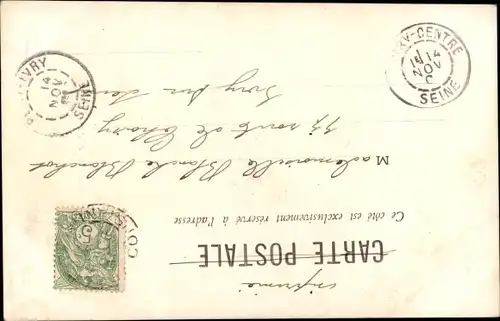 imprimé
CARTE POSTALE
Ce côté est exclusivement réservé à l'adresse
Mademoiselle Blanche Blanchot
route de Choisy
Ivry sur Seine
IVRY
14
NOV
SEINE
IVRY-CENTRE
14
NOV
SEINE
5